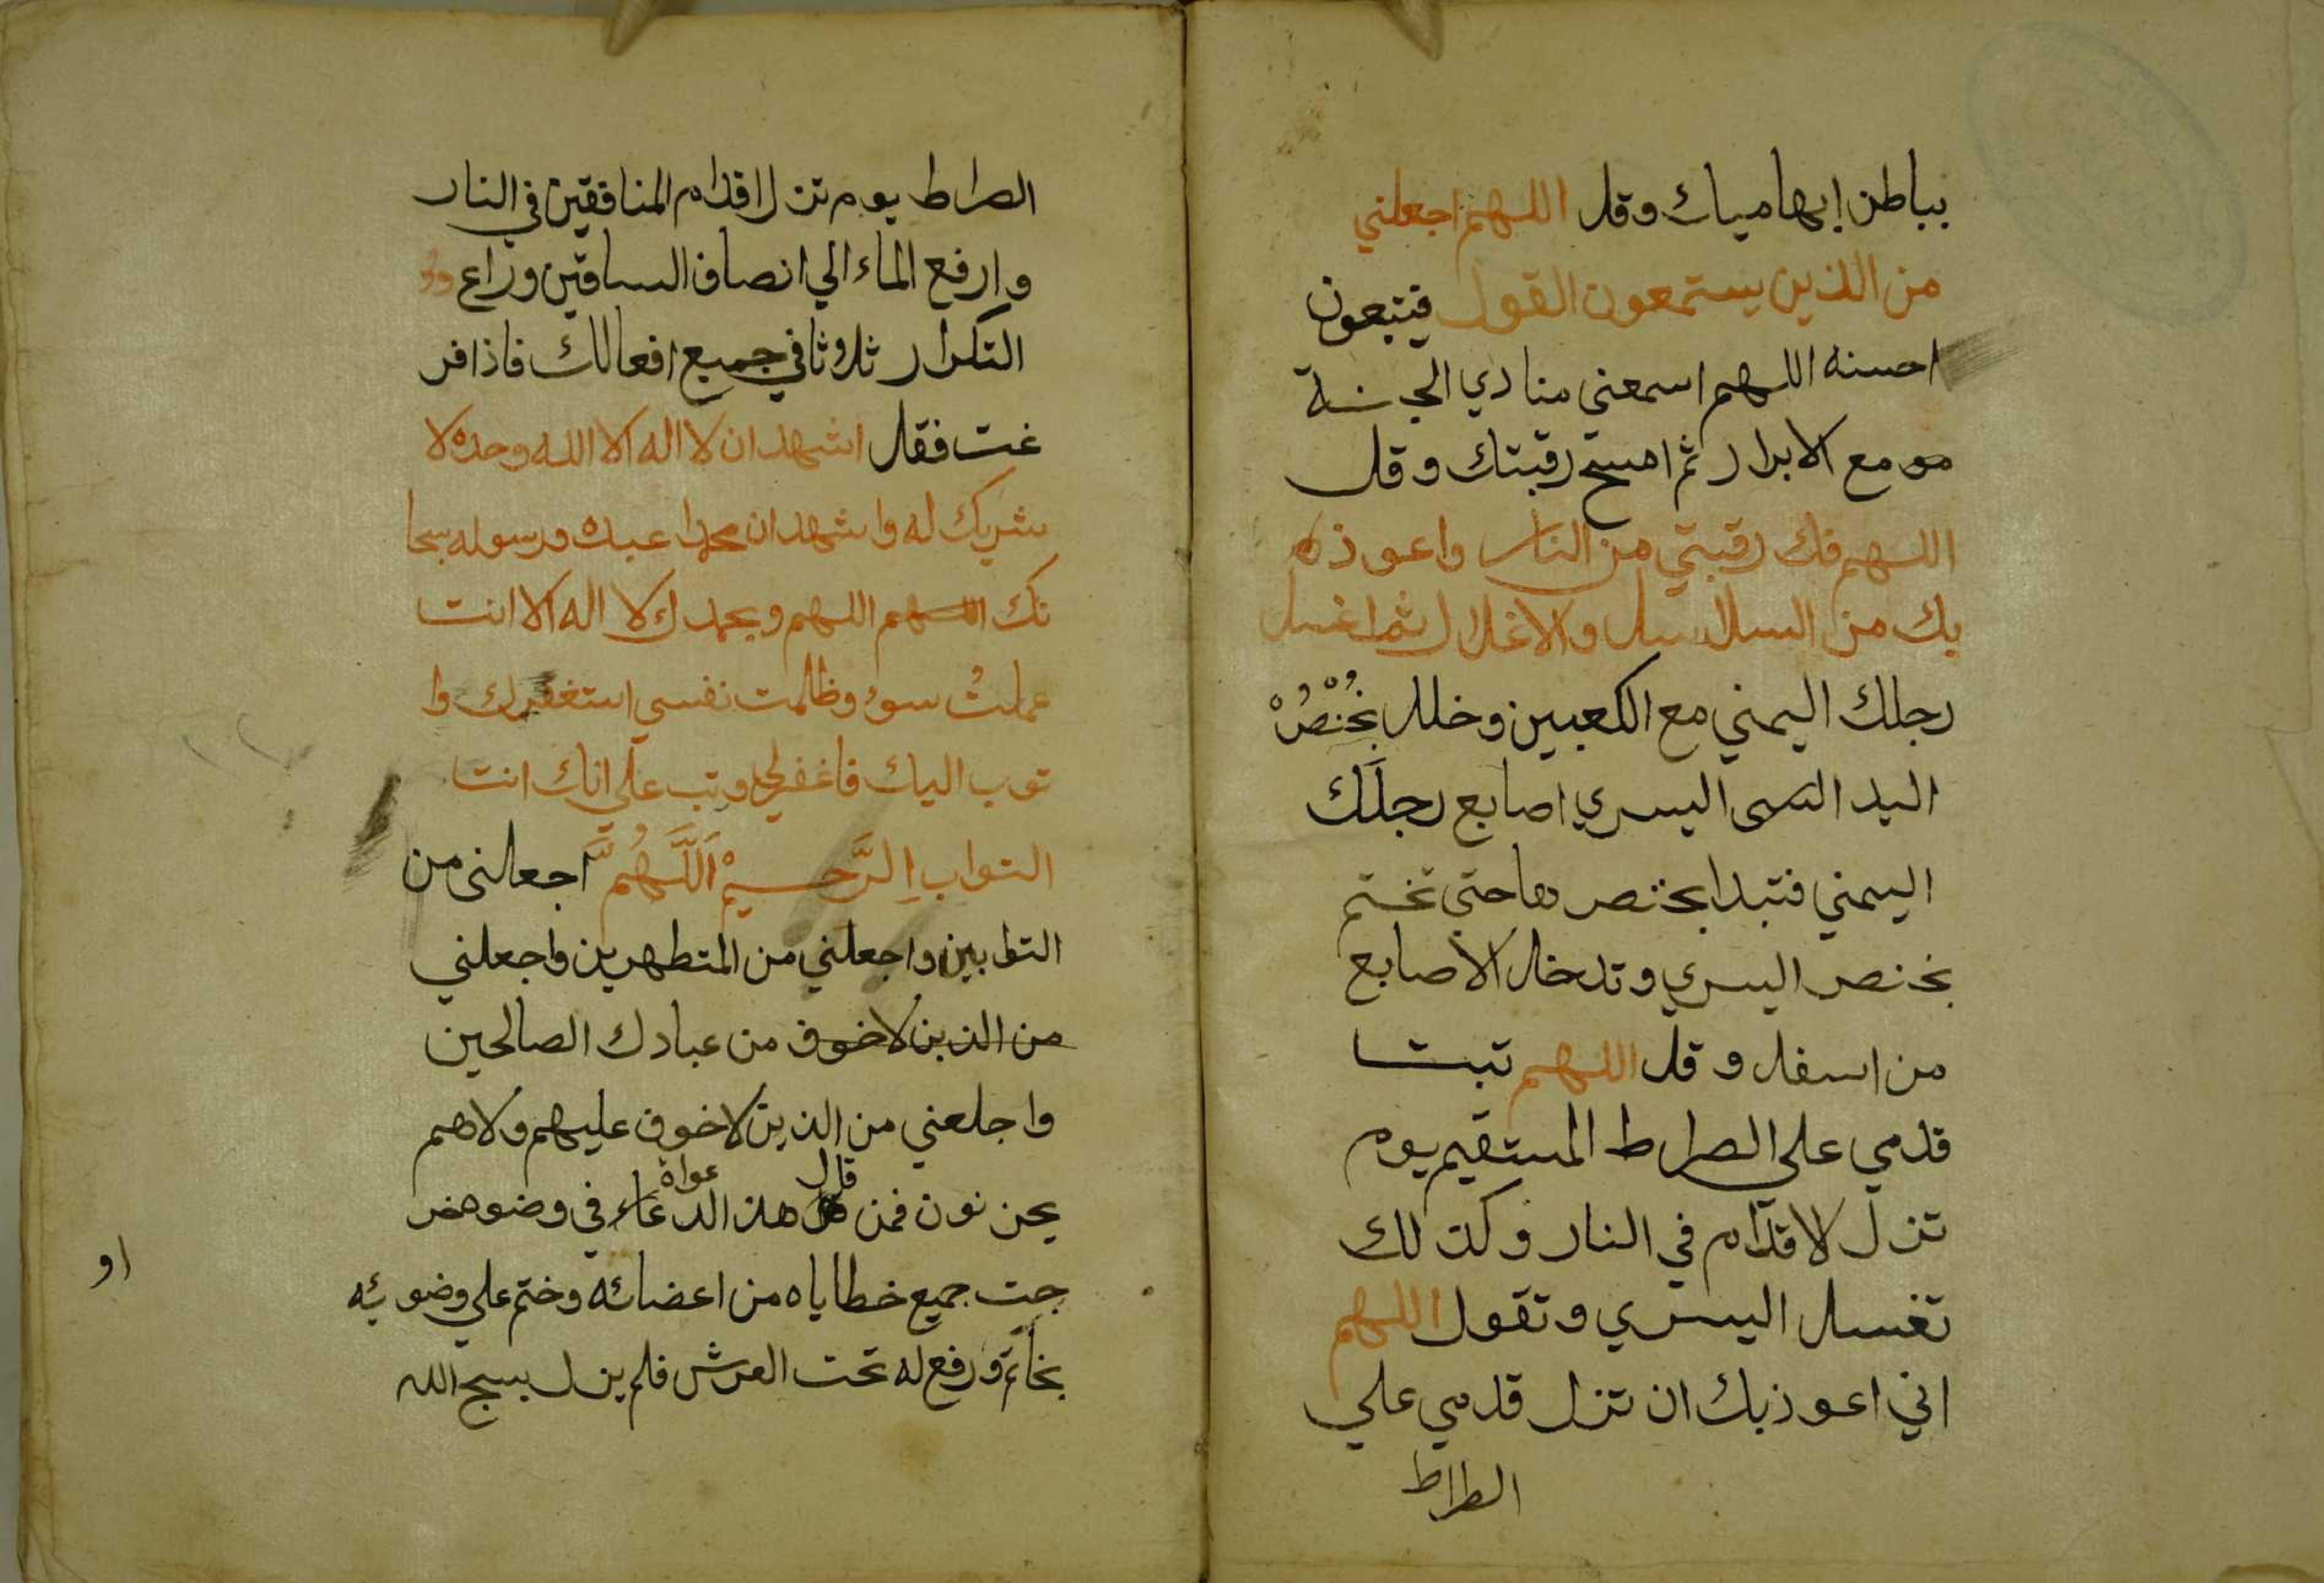 بباطن إبهامياك وقل اللهم اجعلني
من الذين يستمعون القول فيتبعون
احسنه اللهم اسمعني منادي الجنة
مو مع الابرار ثم امسح رقبتك وقل
اللهم فك رقبتي من النار واعوذ
بك من السلاسل والاغلال ثم اغسل
رجلك اليمني مع الكعبين وخلل بخُنْصُرْ
اليد اليسري اصابع رجلك
اليمني فتبدا بخنصرها حتي تختم
بخنصر اليسري وتدخل الاصابع
من اسفل وقل اللهم تبتـ
قدمي علي الصراط المستقيم يوم
تزل الاقدام في النار وكذلك
تغسل اليسري وتقول اللهم
اني اعوذ بك ان تزل قدمي علي
الطراط
الصراط يوم تزل اقدام المنافقين في النار
وارفع الماء الي انصاف الساقين وراع
التكرار ثلاوثا في جميع افعالك فاذا فر
غت فقل اشهد ان لا اله الا الله وحده لا
شريك له واشهد ان محمدا عبده ورسوله سبحا
نك اللهم اللهم وبحمدك لا اله الا انت
عملتُ سوء وظلمت نفسي استغفرك وا
توب اليك فاغفرلي وتب علي انك انت
التواب اِلرَّحيمْ اَللَّهُمَّ اجعلني من
التوابين واجعلني من المتطهرين واجعلني
من الذين لا خوف من عبادك الصالحين
واجلعني من الذين لا خوف عليهم ولا هم
قال عواة
يحزنون فمن هذ الدعاء في وضوه خر
جت جميع خطاياه من اعضائه وختم علي وضوئه
بخاتم ورفع له تحت العرش فلم يزل يسبح الله
او